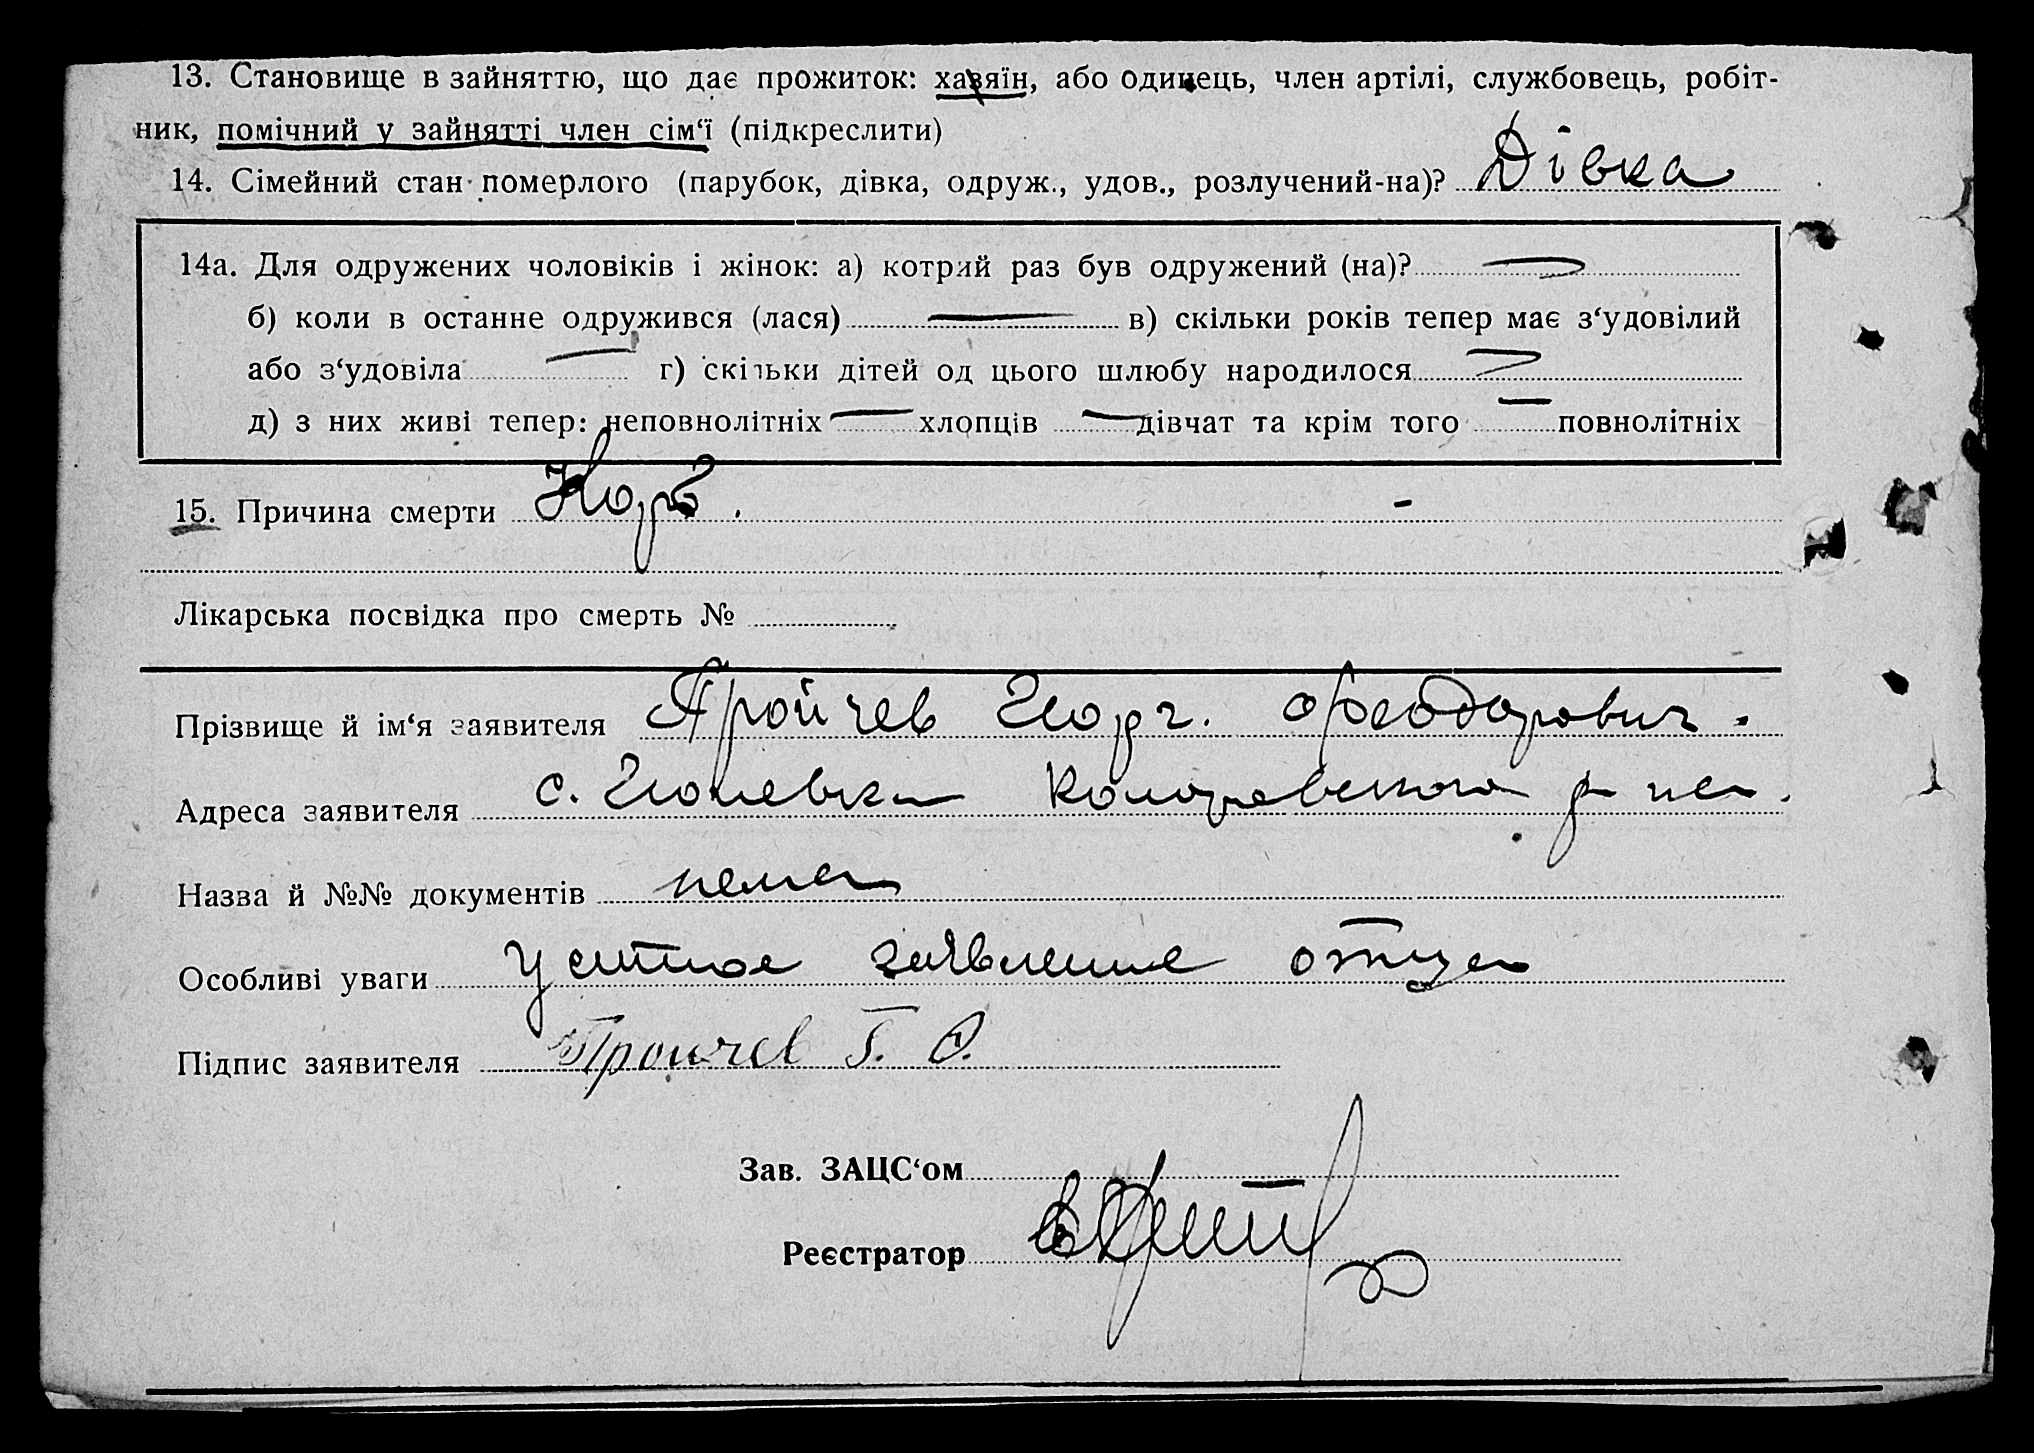 13. Становище в зайняттю, що дає прожиток: хазяїн, або одинець, член артілі, службовець, робіт-
ник, помічний у зайнятті член сім‘ї (підкреслити)
14. Сімейний стан померлого (парубок, дівка, одруж., удов., розлучений-на)? Дівка
14а. Для одружених чоловіків і жінок: а) котрий раз був одружений (на)?
б) коли в останне одружився (лася) в) скільки років тепер має з‘удовілий
або з‘удовіла г) скільки дітей од цього шлюбу народилося
д) з них живі тепер: неповнолітніх хлопців дівчат та крім того повнолітніх
15. Причина смерти Корь.
Лікарська посвідка про смерть №
Прізвище й ім‘я заявителя Пройчев Георг. Феодорович.
Адреса заявителя с. Гюневка Коларовского р-на.
Назва й №№ документів нема
Особливі уваги устное заявление отца
Підпис заявителя Пройчев Г. Ф.
Зав. ЗАЦС‘ом
Реєстратор